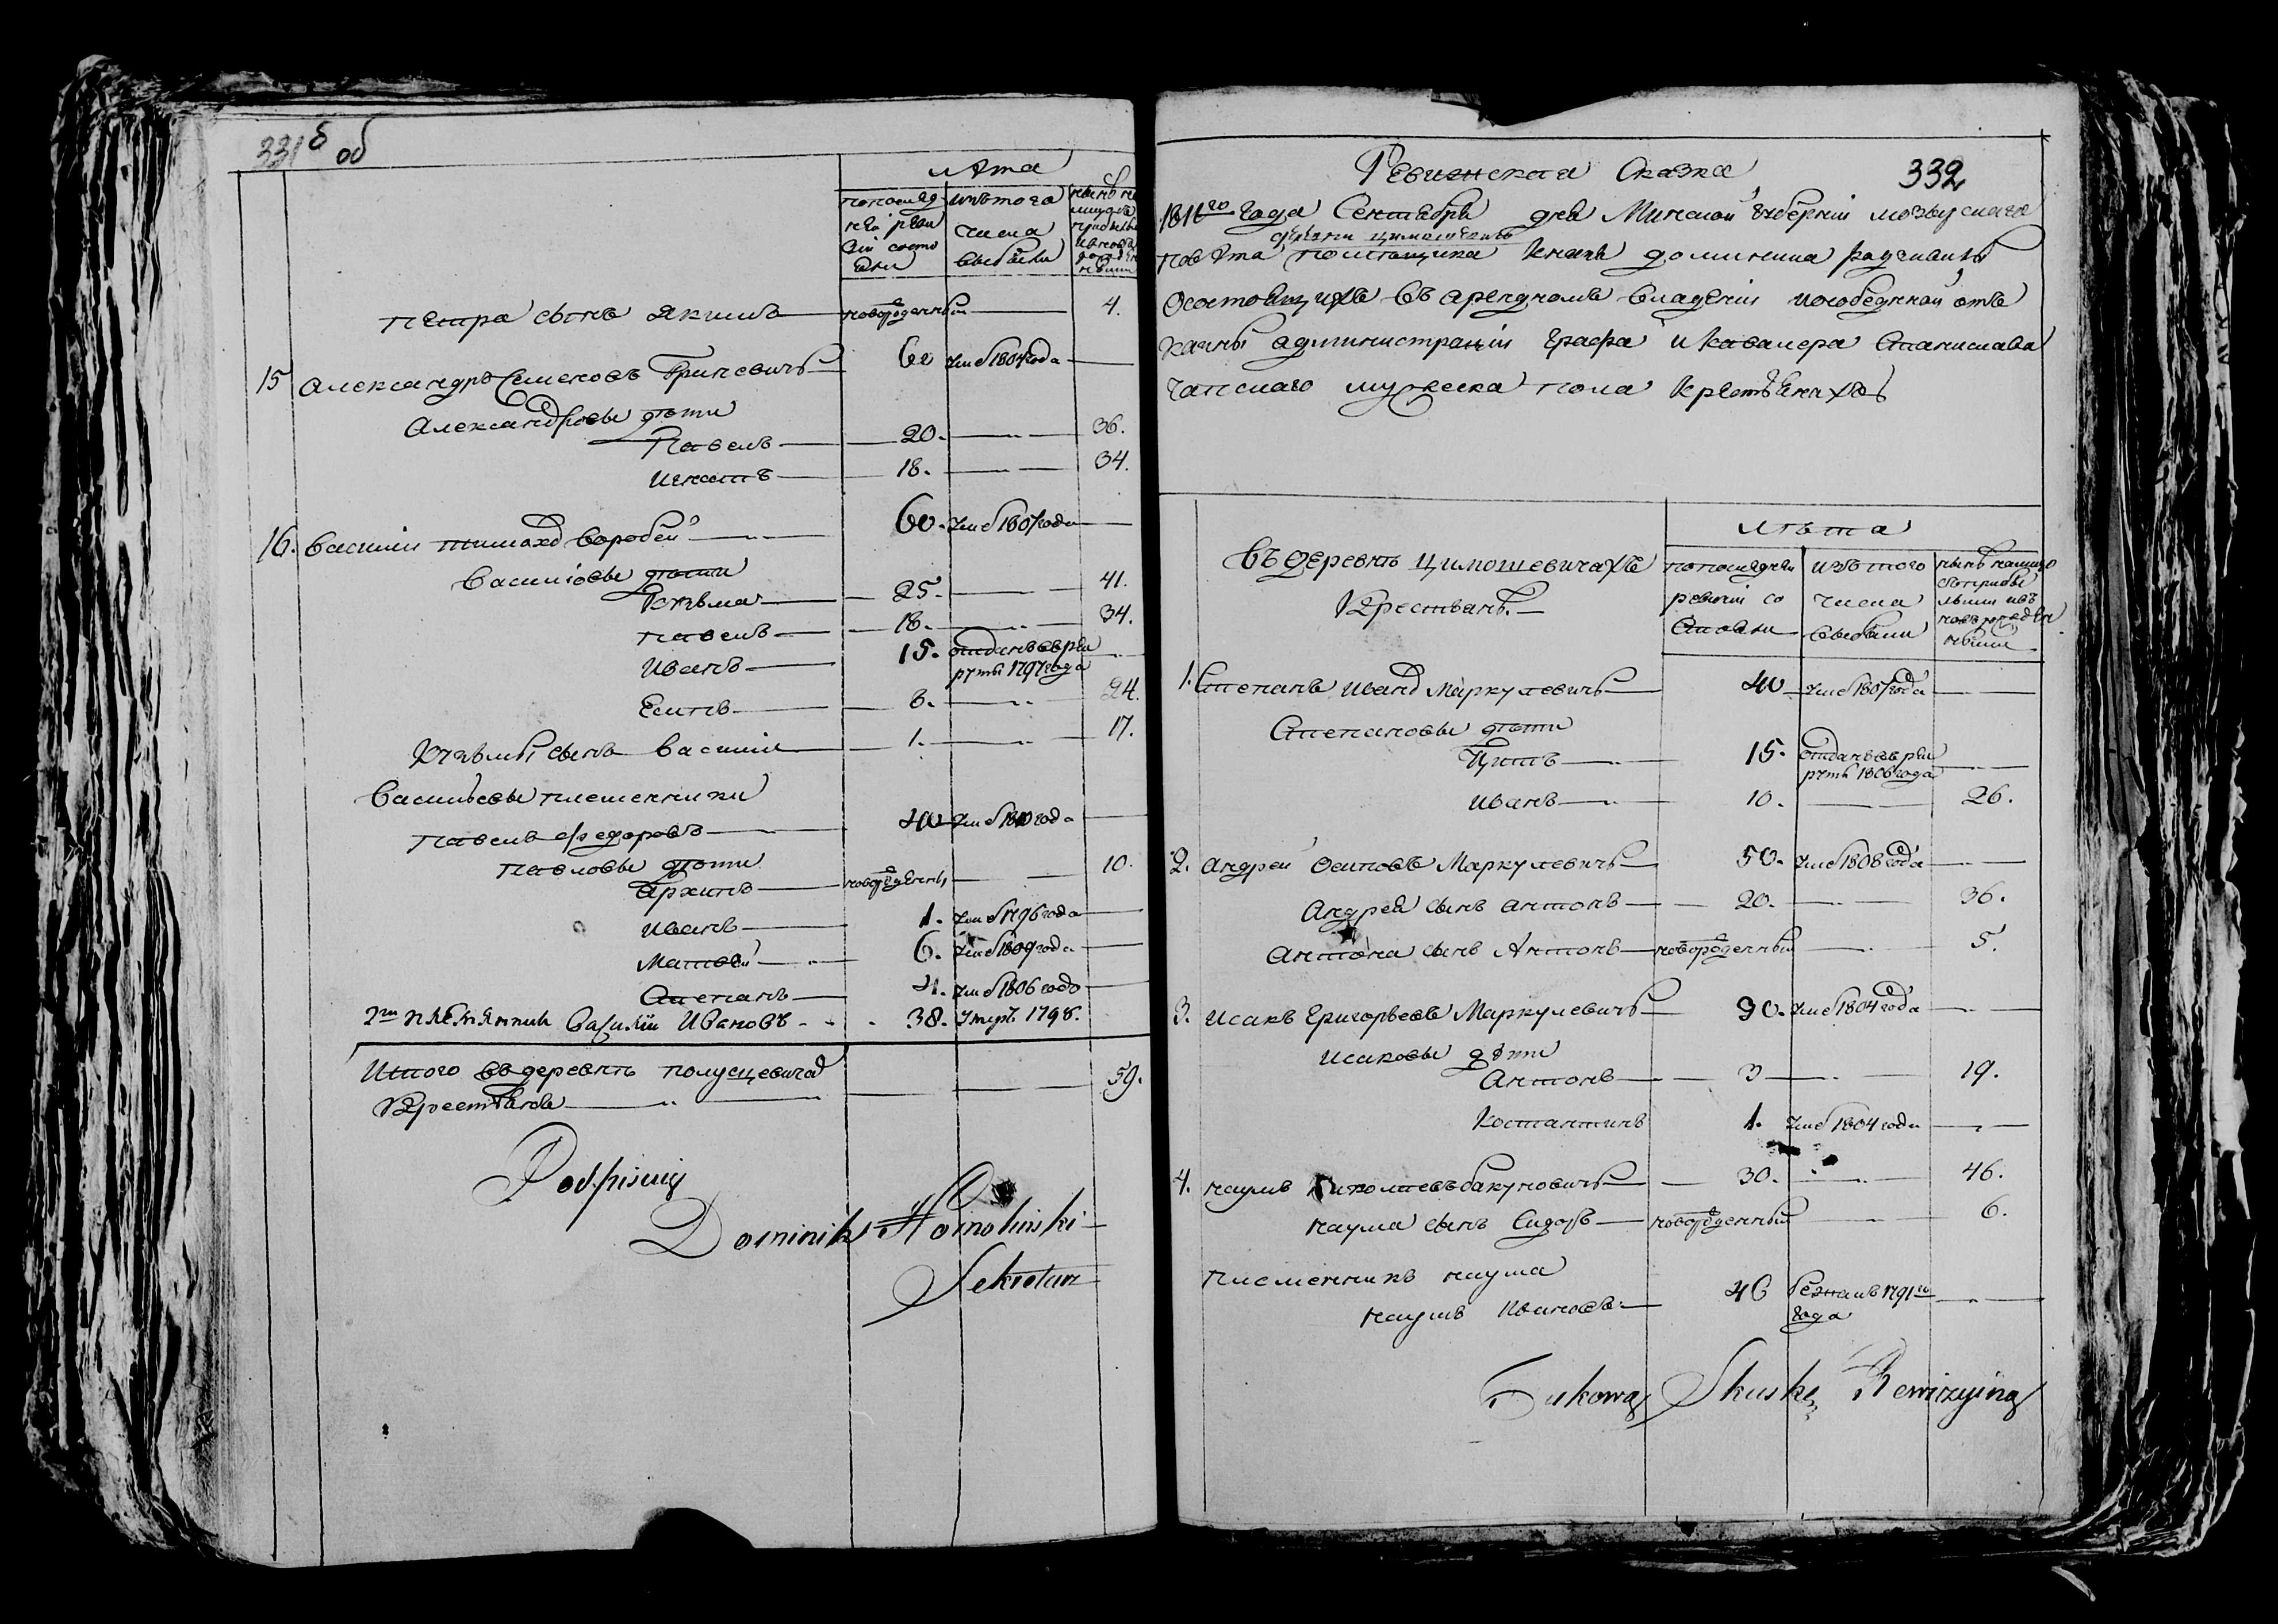 331 б об
лѣта
попослед ней реви зiи состо яли
изътого числа выбыли
Петра сынъ Якимъ новорожденный 4.
15 Александръ Семеновъ Гриневичъ 60 Умеۥ 1804 года
Александровы дѣти
Павелъ 20. 36.
Игнатъ 18. 34.
16. Василiй Тимохо Воробей 60. Уме 1807 года
Василiовы дѣти
Козьма 25. 41.
Павелъ 18. 34.
Иванъ 15. отданъ въ ре
круты 1797 года
Есипъ 8. 24.
Козьмы сынъ Василiй 1. 17.
Васильевы племенники
Павелъ Федоровъ 40 Уме 1810 года
Павловы дѣти
Архипъ новорожденны 10.
Иванъ 1. Уме 1796 года
Матвей 6. Уме 1809 года
Степанъ 4. Уме 1806 года
2ти племянник Василiй Ивановъ 38. Умеръ 1798.
Итого въ деревнѣ Полуецевичахъ 59.
Крестьянъ
Podpisuię
Dominik
Sekretarz
Ревизская Сказка 332
1811го года Сентября дня Минской Губернiи Мозырскаго
деревни Цимошевичъ
повѣта помѣщика Князя Доминика Радзивилы
о состоящихъ въ арендномъ владенiи особенной отъ
казны администрацiи Графа и Кавалера Станислава
Чапскаго мужеска пола крестьянахъ
лѣта
въ деревнѣ Цимошевичахъ
Крестьянъ.
попоследней ревизiи со стояли
изътого числа выбыли
1. Степанъ Ивано Маркулевичъ 40 Уме 1807 года
Степановы дѣти
Титъ 15. отданъ въ ре
круты 1806 года
Иванъ 10. 26.
2. Андрей Осиповъ Маркулевичъ 50. Уме 1808 года
Андрея сынъ Антонъ 20. 36.
Антона сынъ Антонъ новорожденный 5.
3. Исакъ Григорьевъ Маркулевичъ 30. Уме 1804 года
Исаковы дѣти
Антонъ 3 19.
Костантинъ 1. Уме 1804 года
4. Наумъ 30. 46.
Наума сынъ Сидоръ новорожденный 6.
Племенникъ Наума
Наумъ Ивановъ 40 бежалъ 1791го
года
Takową Skaskę Rewizyiną